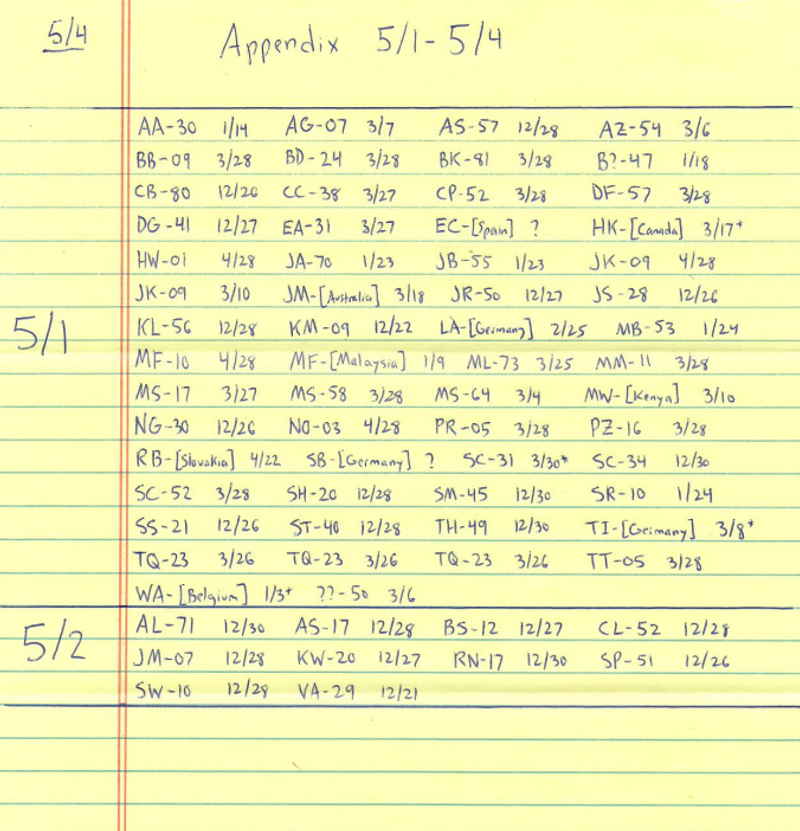 5/4 Appendix 5/1-5/4
AA-30 1/14 AG-07 3/7 AS-57 12/28 AZ-54 3/6
BB-09 3/28 BD-24 3/28 BK-81 3/28 B?-47 1/18
CB-80 12/26 CC-38 3/27 CP-52 3/28 DF-57 3/28
DG-41 12/27 EA-31 3/27 EC-[Spain] ? HK-[Canada] 3/17*
HW-01 4/28 JA-70 1/23 JB-55 1/23 JK-09 4/28
JK-09 3/10 JM-[Australia] 3/18 JR-50 12/27 JS-28 12/26
5/1 KL-56 12/28 KM-09 12/22 LA-[Germany] 2/25 MB-53 1/24
MF-10 4/28 MF-[Malaysia] 1/9 ML-73 3/25 MM-11 3/28
MS-17 3/27 MS-58 3/28 MS-64 3/4 MW-[Kenya] 3/10
NG-30 12/26 NO-03 4/28 PR-05 3/28 PZ-16 3/28
RB-[Slovakia] 4/22 SB-[Germany] ? SC-31 3/30* SC-34 12/30
SC-52 3/28 SH-20 12/28 SM-45 12/30 SR-10 1/24
SS-21 12/26 ST-40 12/28 TH-49 12/30 TI-[Germany] 3/8*
TQ-23 3/26 TQ-23 3/26 TQ-23 3/26 TT-05 3/28
WA-[Belgium] 1/3* ??-50 3/6
5/2 AL-71 12/30 AS-17 12/28 BS-12 12/27 CL-52 12/28
JM-07 12/28 KW-20 12/27 RN-17 12/30 SP-51 12/26
SW-10 12/28 VA-29 12/21